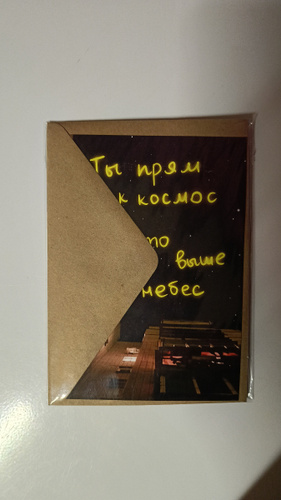 Ты прям
к космос
то
выше
небес